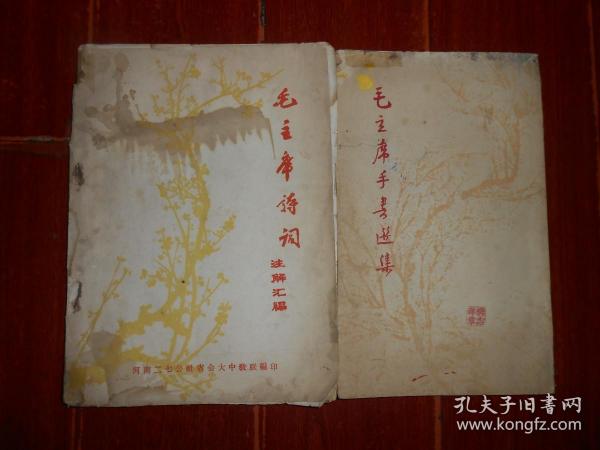 毛主席诗词
注解汇编
河南二七公社省会大中教联编印
毛主席手书选集
孔夫子旧书网
www.kongfz.com